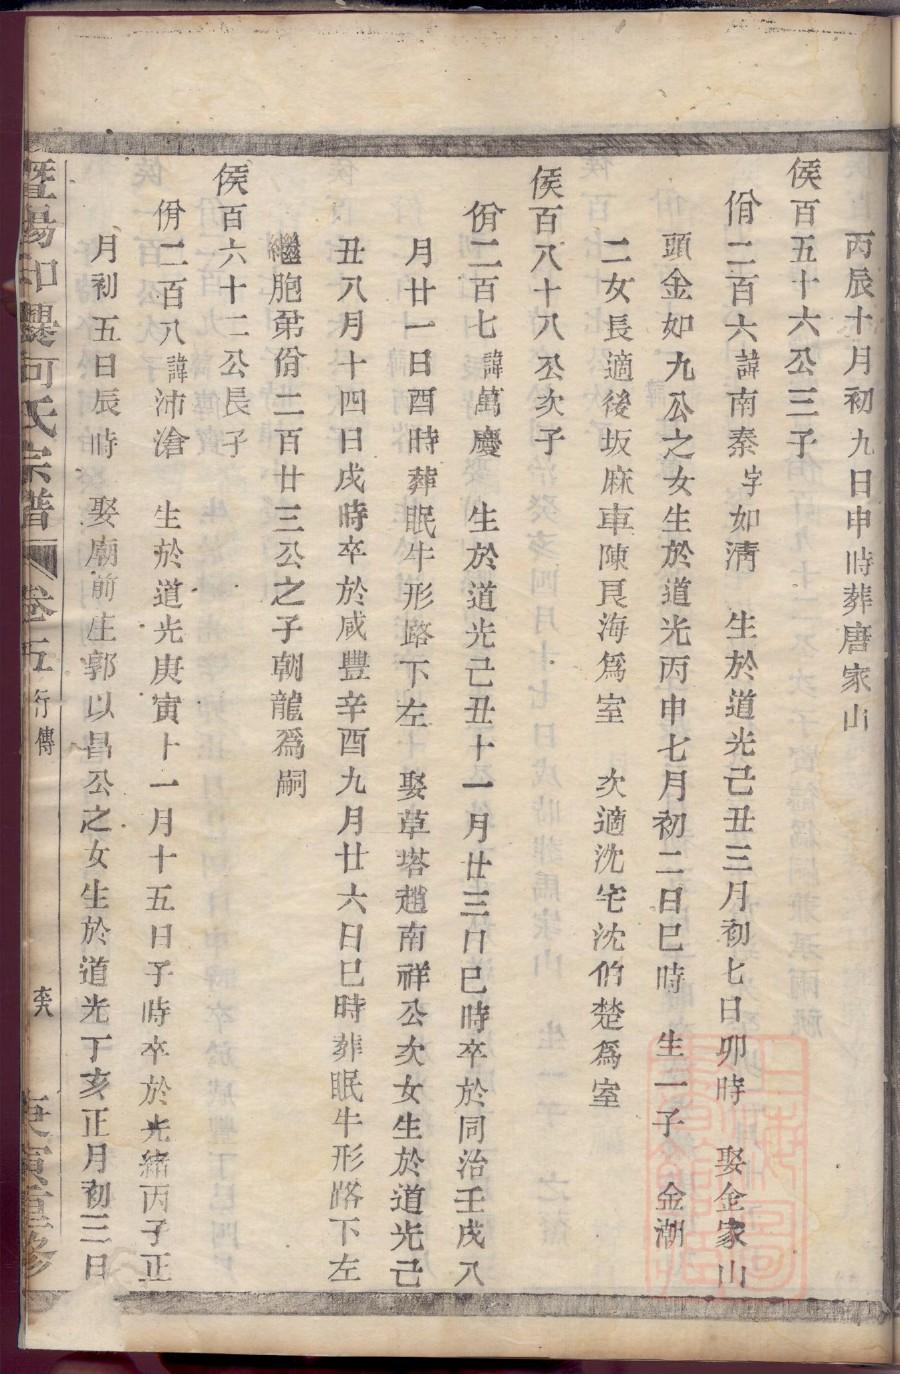 丙辰十月初九日申時葬唐家山
侯百五十六公三子
佾二百六諱南秦字如清 生於道光己丑三月初七日卯時 娶金家山
頭金如九公之女生於道光丙申七月初二日巳時 生一子 金潮
二女長適後坂麻車陳艮海爲室 次適沈宅沈伯楚爲室
侯百八十八公次子
佾二百七諱萬慶 生於道光己丑十一月廿三日巳時卒於同治壬戌八
月廿一日酉時葬眠牛形路下左 娶草塔趙南祥公次女生於道光己
丑八月十四日戌時卒於咸豐辛酉九月廿六日巳時葬眠牛形路下左
繼胞弟佾二百廿三公之子朝龍爲嗣
侯百六十二公長子
佾二百八諱沛滄 生於道光庚寅十一月十五日子時卒於光緒丙子正
月初五日辰時 娶廟前庄郭以昌公之女生於道光丁亥正月初三日
暨陽 何氏宗譜 卷五 行傳 庚寅重修